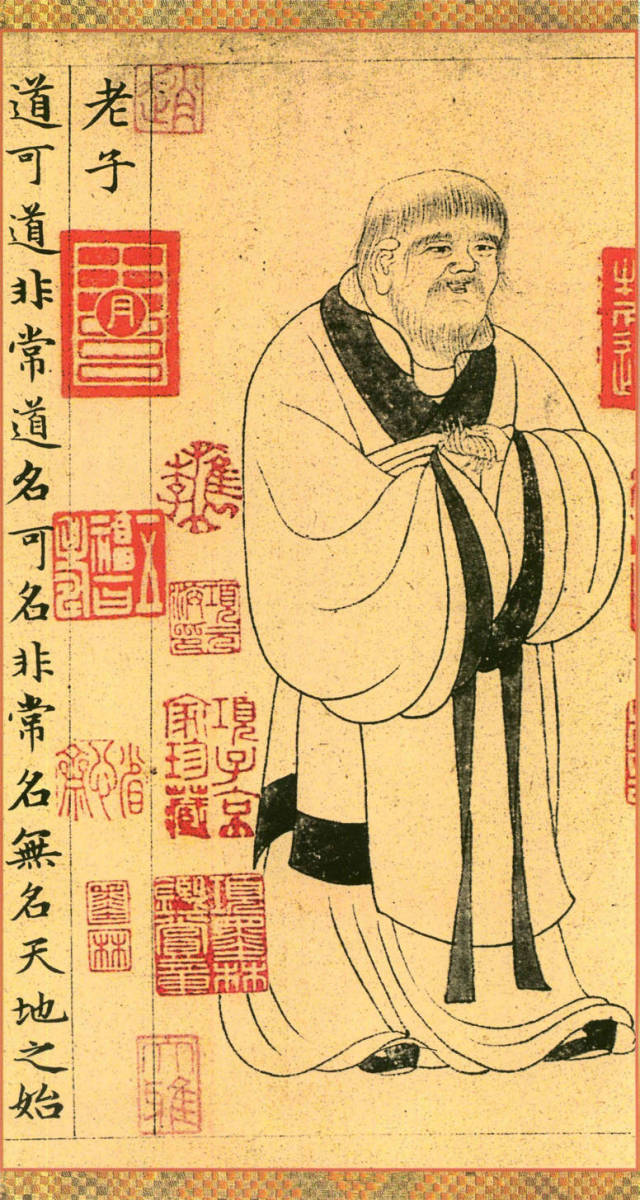 老子
道可道非常道名可名非常名無名天地之始
趙
項元汴印
項子京家珍藏
項墨林鑑賞章
墨林